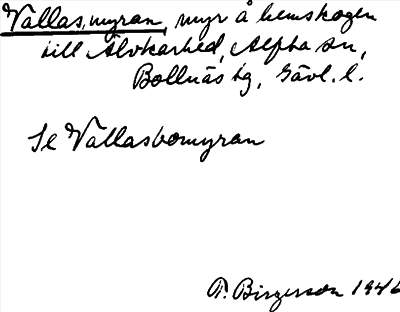 Vallasmyran, myr å hemskogen
till Älvkarhed, Alfta sn,
Bollnäs tg, Gävl. l.
Se Vallasbomyran
P. Birgerson 1946